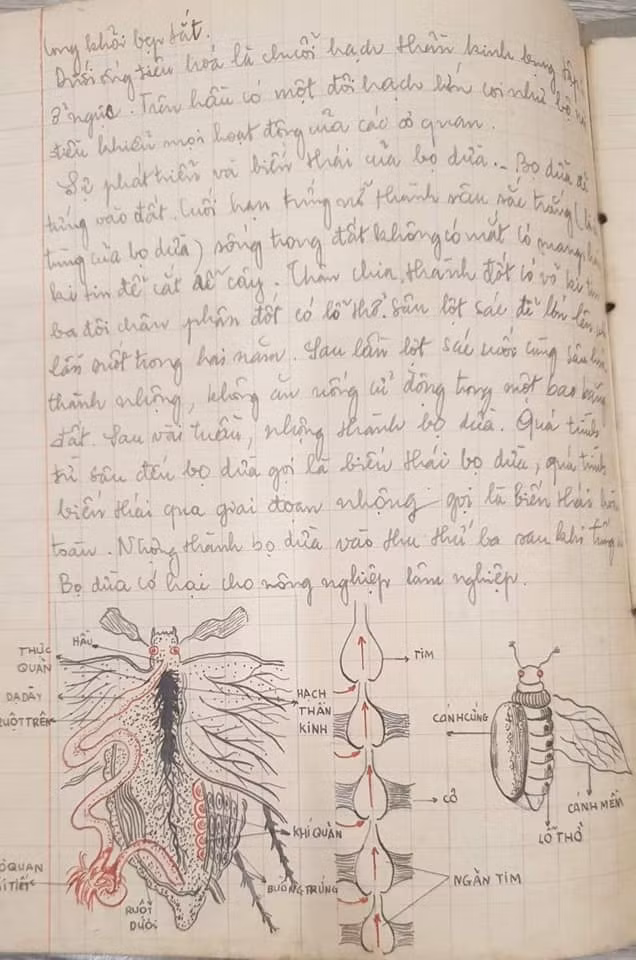 long khối bẹp sắt.
Dưới ống tiêu hoá là chuỗi hạch thần kinh bụng tập
ở ngực. Trên hầu có một đôi hạch lớn coi như bộ
điều khiển mọi hoạt động của các cơ quan.
Sự phát triển và biến thái của bọ dừa. - Bọ dừa đẻ
trứng vào đất. Cuối hạn trứng nở thành sâu sắc trắng
trùng của bọ dừa) sống trong đất không có mắt có mang
kì tin để cắt rễ cây. Thân chia thành đốt có vỏ ki tin
ba đôi chân phân đốt có lỗ thở. Sâu lột sác để lớn lên
lần một trong hai năm. Sau lần lột sác cuối cùng sâu
thành nhộng, không ăn uống cử động trong một bao bằng
đất. Sau vài tuần, nhộng thành bọ dừa. Quá trình
từ sâu đến bọ dừa gọi là biến thái bọ dừa, quá trình
biến thái qua giai đoạn nhộng gọi là biến thái
toàn. Nhộng thành bọ dừa vào thu thứ ba sau khi trứng
Bọ dừa có hại cho nông nghiệp lâm nghiệp.
HẦU
THỰC
QUẢN
DẠ DÀY
RUỘT TRÊN
CƠ QUAN
BÀI TIẾT
RUỘT
DƯỚI
HẠCH
THẦN
KINH
KHÍ QUẢN
BUỒNG TRỨNG
TIM
CƠ
NGĂN TIM
CÁNH CỨNG
CÁNH MỀM
LỖ THỞ